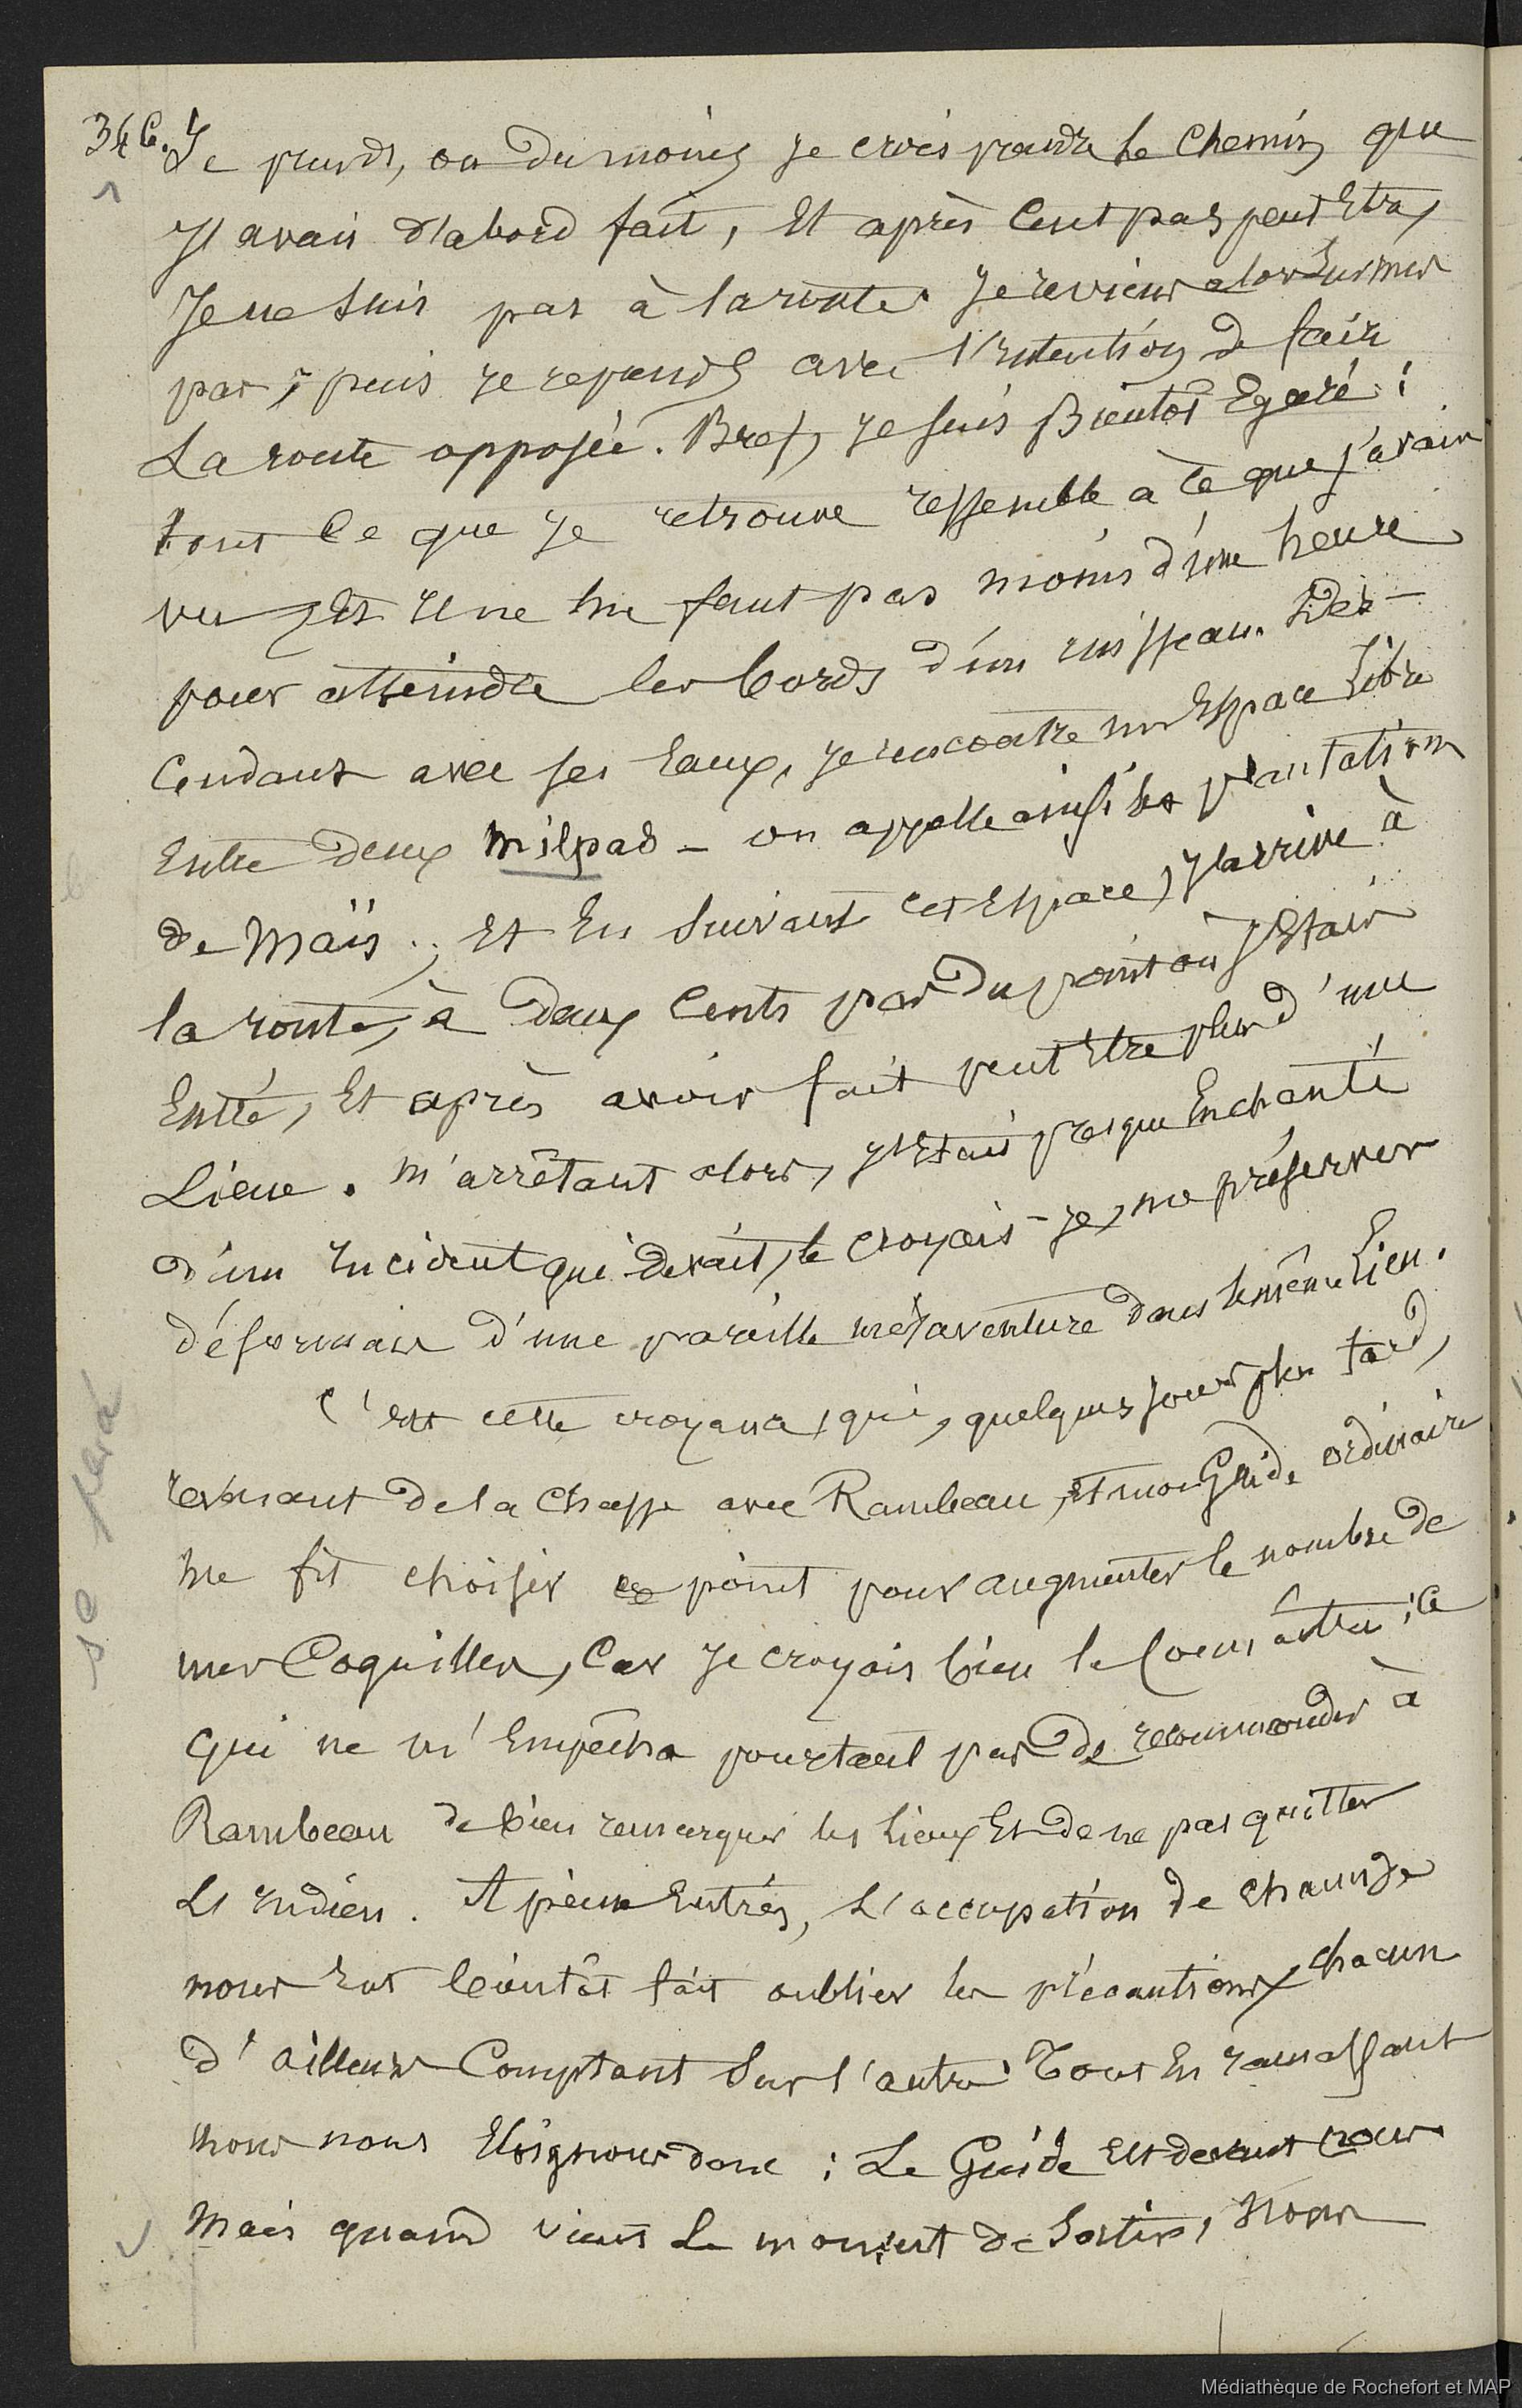 346. Je prends, ou du moins je crois prendre le chemin que
j'avais d'abord fait, et après cent pas peut être,
je ne suis pas à la route. Je reviens alors sur mes
pas, puis je reprends avec l'intention de faire
la route opposée. Bref, je suis bientôt égaré :
tout ce que je retrouve ressemble à ce que j'avais
vu, et il ne me faut pas moins d'une heure
pour atteindre les bords d'un ruisseau. Des-
cendant avec ses eaux, je rencontre un espace libre
entre deux milpas - on appelle ainsi les plantations
de Maïs ; et en suivant cet espace, j'arrive à
la route, à deux cents pas du point où j'étais
entré, et après avoir fait peut être plus d'une
lieue. M'arrêtant alors, j'étais presque enchanté
d'un incident qui devait, le croyais-je, me préserver
désormais d'une pareille mésaventure dans le même lieu.
C'est cette croyance, qui, quelques jours plus tard,
revenant de la chasse avec Rambeau, et mon Guide ordinaire
me fit choisir ce point pour augmenter le nombre de
mes Coquilles, car je croyais bien le connaître ; ce
qui ne m'empêcha pourtant pas de recommander à
Rambeau de bien remarquer les lieux et de ne pas quitter
l'indien. A peine entrés, l'occupation de chacun de
nous eut bientôt fait oublier les précautions, chacun
d'ailleurs comptant sur l'autre. Tout en ramassant
nous nous éloignons donc : Le Guide est devant nous
Mais quand vient le moment de sortir, nous
se sera
Médiathèque de Rochefort et MAP